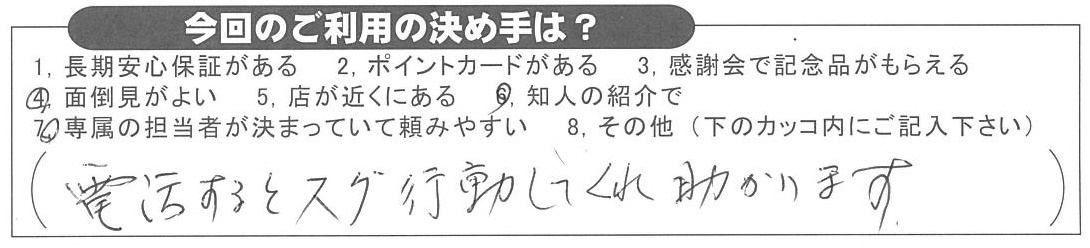 今回のご利用の決め手は？
1, 長期安心保証がある 2, ポイントカードがある 3, 感謝会で記念品がもらえる
4, 面倒見がよい 5, 店が近くにある 6, 知人の紹介で
7, 専属の担当者が決まっていて頼みやすい 8, その他（下のカッコ内にご記入下さい）
（電話するとスグ行動してくれ助かります）